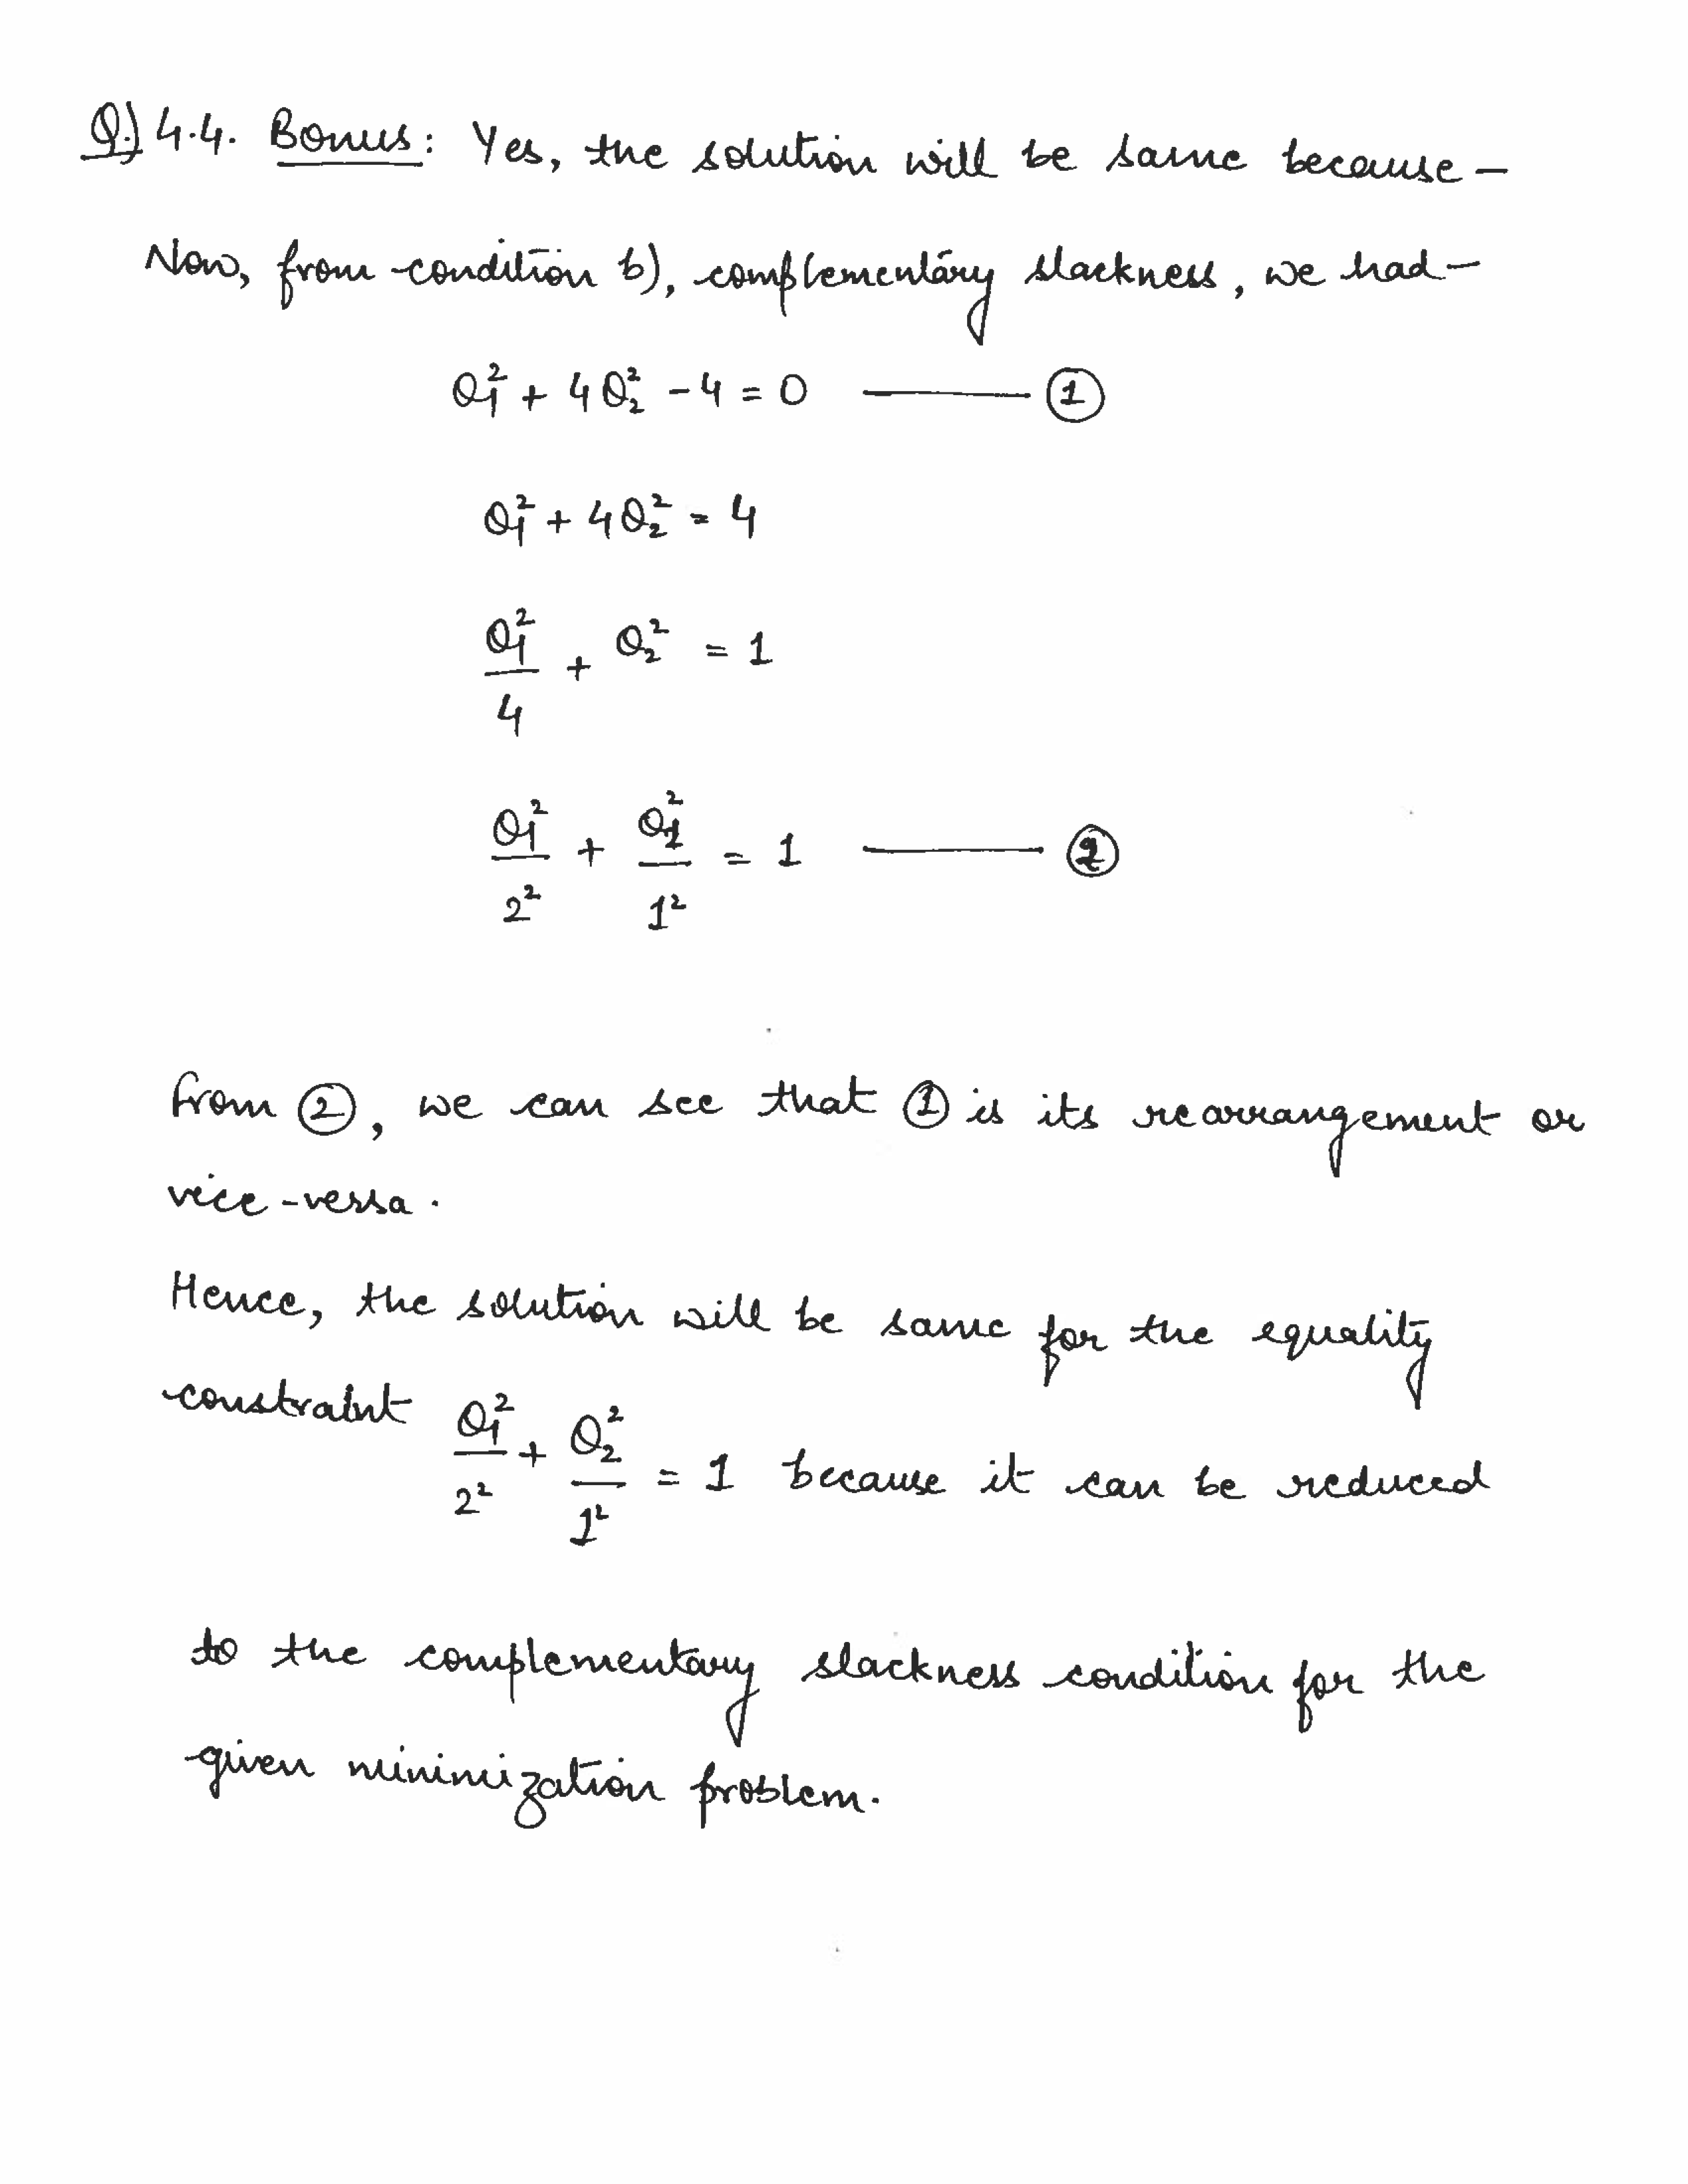 Q.) 4.4. Bonus: Yes, the solution will be same because –
Now, from condition b), complementary slackness, we had –
θ₁² + 4θ₂² - 4 = 0 ——— ①
θ₁² + 4θ₂² = 4
θ₁²/4 + θ₂² = 1
θ₁²/2² + θ₂²/1² = 1 ——— ②
from ②, we can see that ① is its rearrangement or
vice-versa.
Hence, the solution will be same for the equality
constraint θ₁²/2² + θ₂²/1² = 1 because it can be reduced
to the complementary slackness condition for the
given minimization problem.